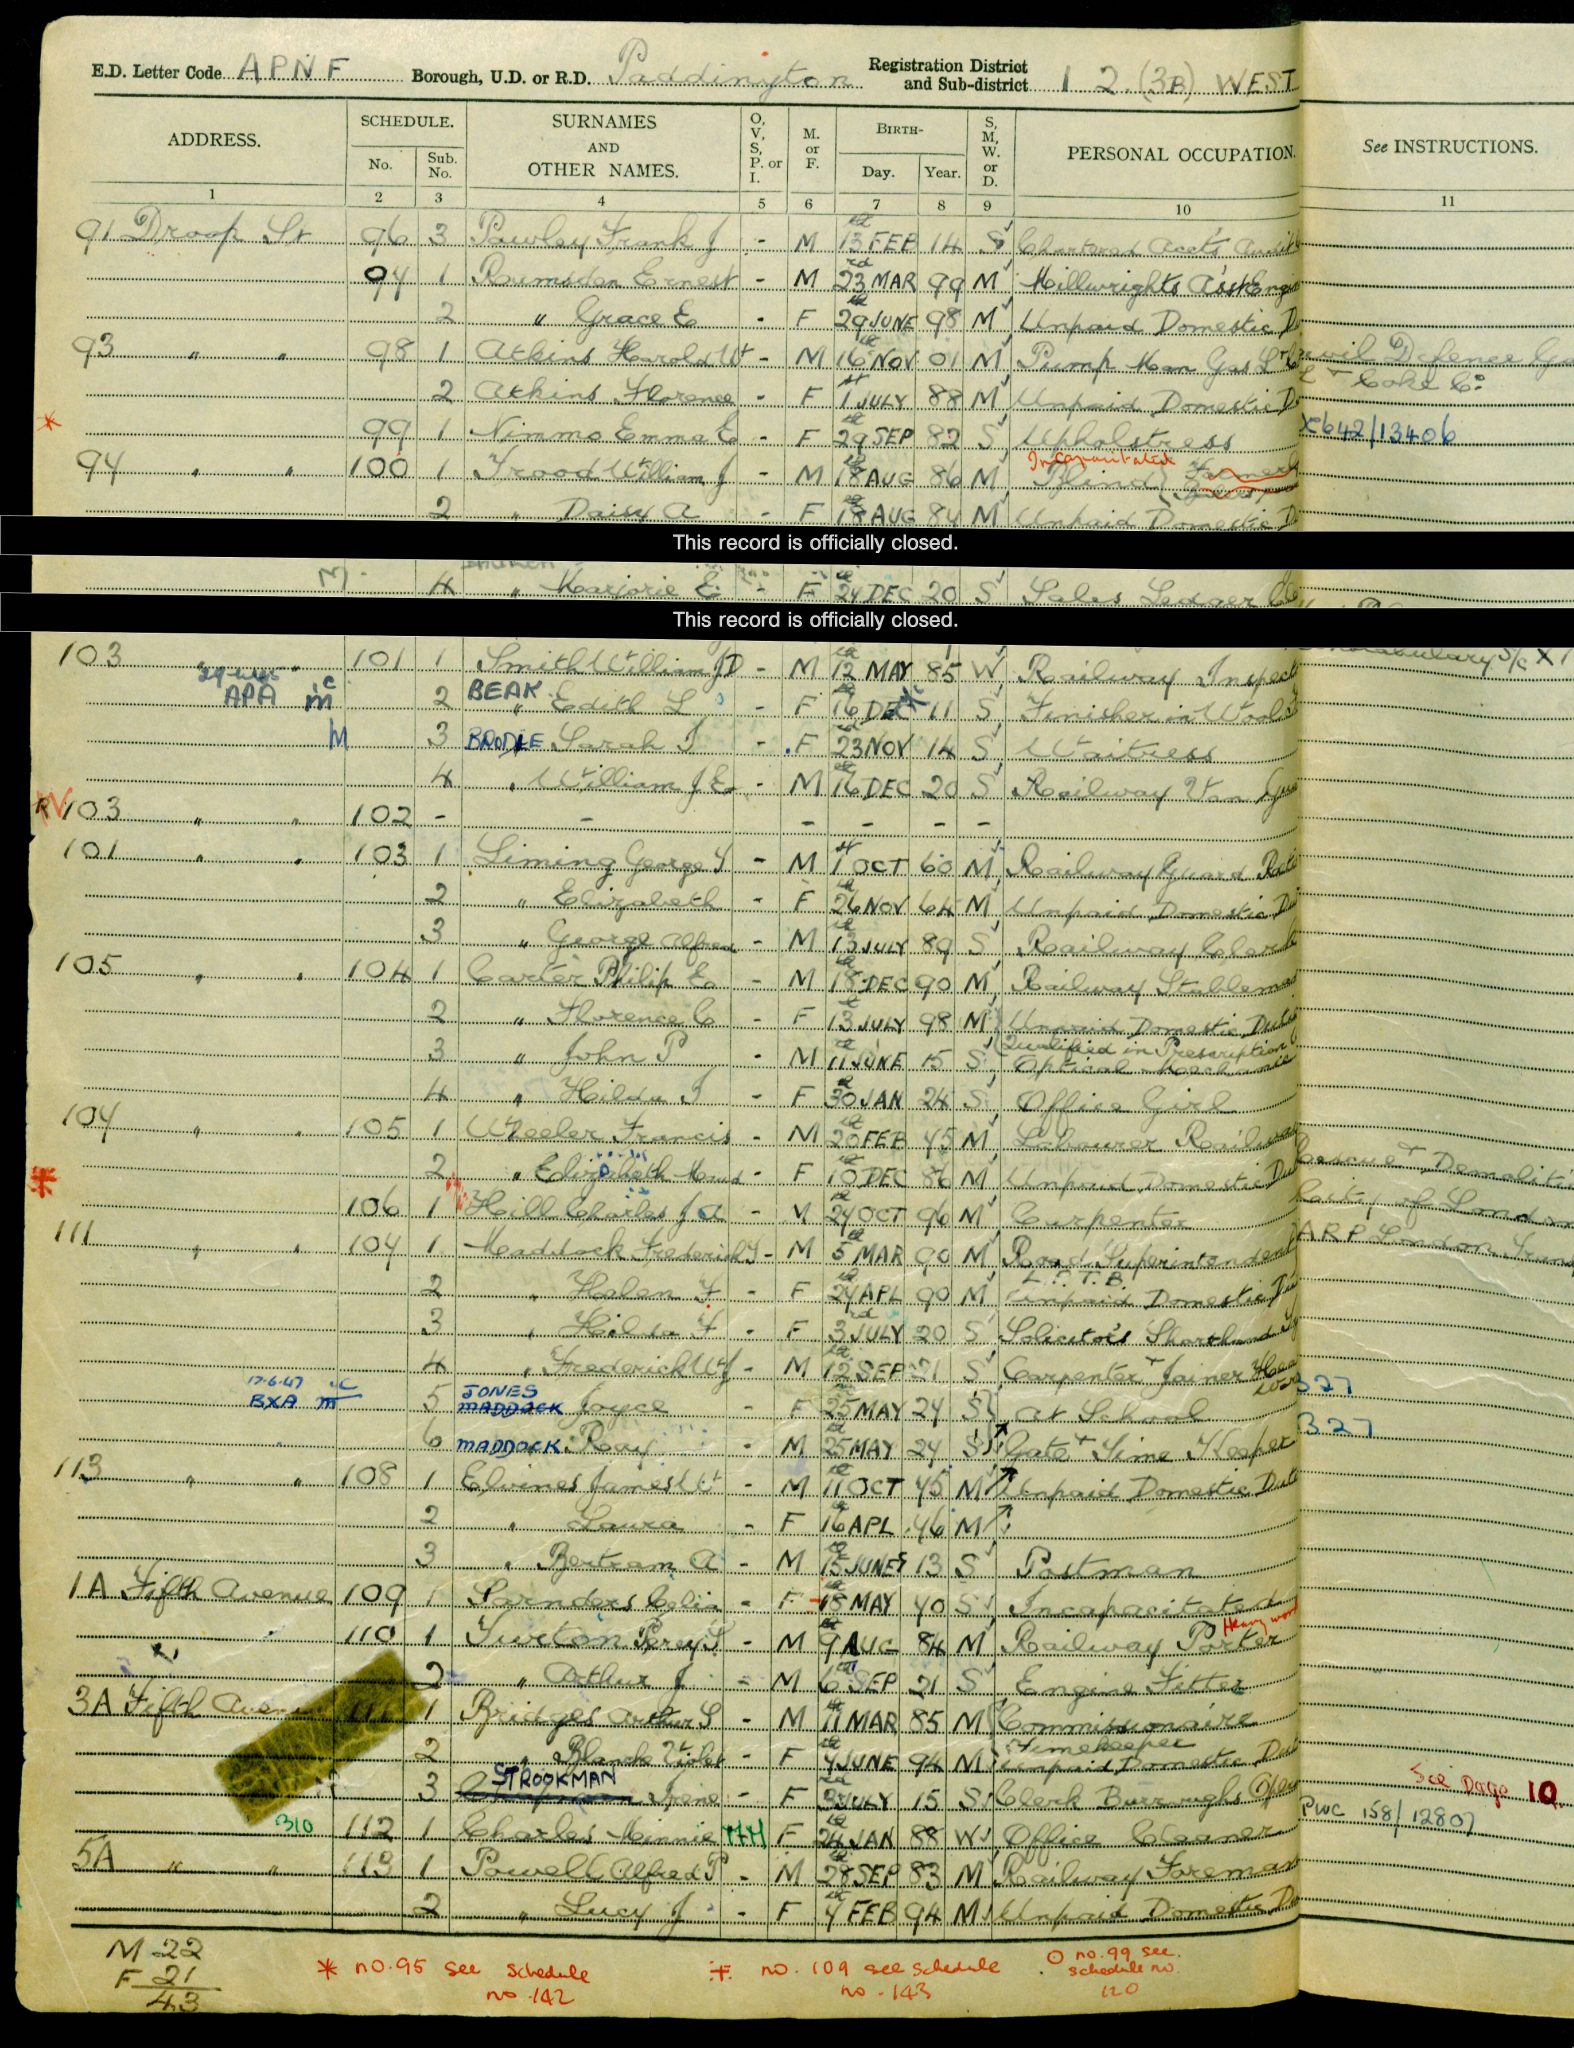 E.D. Letter Code APNF Borough, U.D. or R.D. Paddington Registration District and Sub-district 1 2. (3B) WEST
ADDRESS. SCHEDULE. No. Sub. No. SURNAMES AND OTHER NAMES. O, V, S, P. or I. M. or F. BIRTH- Day. Year. S, M, W. or D. PERSONAL OCCUPATION. See INSTRUCTIONS.
1 2 3 4 5 6 7 8 9 10 11
91 Droop St 96 3 Pawley Frank J - M 13th FEB 14 S Chartered Acct's Audit
97 1 Ramsden Ernest - M 23rd MAR 99 M Millwrights Asst Engin
2 " Grace E - F 29th JUNE 98 M Unpaid Domestic D
93 " " 98 1 Atkins Harold W - M 16th NOV 01 M Pump Man Gas L & C Civil Defence Ga
2 Atkins Florence - F 1st JULY 88 M Unpaid Domestic D L & Coke Co
* 99 1 Nimmo Emma E - F 29th SEP 82 S Upholstress X642/13406
Incapacitated
94 " " 100 1 Frood William J - M 18th AUG 86 M Blind Formerly
2 " Daisy A - F 18th AUG 84 M Unpaid Domestic D
This record is officially closed.
M. 4 " Marjorie E - F DEC 20 S Sales Ledger Cle
This record is officially closed.
103 " " 101 1 Smith William J D - M 12th MAY 85 W Railway Inspect
APA m 2 BEAK " Edith L - F 16th DEC 11 S Finisher in Wool
M 3 BRODIE Sarah J - F 23rd NOV 14 S Waitress
4 " William J E - M 16th DEC 20 S Railway Van Gua
103 " " 102 - - - - - -
101 " " 103 1 Liming George T - M 1st OCT 60 M Railway Guard Reti
2 " Elizabeth - F 26th NOV 64 M Unpaid Domestic Du
3 " George Alfred - M 13th JULY 89 S Railway Clerk
105 " " 104 1 Carter Philip E - M 18th DEC 90 M Railway Stableman
2 " Florence C - F 13th JULY 98 M Unpaid Domestic Duti
Qualified in Prescription
3 " John P - M 11th JUNE 15 S Optical Mechanic
4 " Hilda J - F 30th JAN 24 S Office Girl
107 " " 105 1 Wheeler Francis - M 20th FEB 75 M Labourer Railway
* 2 " Elizabeth Maud - F 10th DEC 86 M Unpaid Domestic Du Rescue & Demoliti
106 1 Hill Charles J A - M OCT 96 M Carpenter City of London
111 " " 107 1 Maddock Frederick J - M 5th MAR 90 M Road Superintendent ARP London Trans
L.P.T.B.
2 " Helen F - F APL 90 M Unpaid Domestic Du
3 " Hilda F - F 3rd JULY 20 S Solicitors Shorthand Ty
4 " Frederick W J - M 12th SEP 21 S Carpenter & Joiner Hea
17.6.47 JONES 327
BXA m 5 MADDOCK Joyce - F 25th MAY 24 S At School
6 MADDOCK Roay - M 25th MAY 24 S Gate & Time Keeper 327
113 " " 108 1 Elvines James W - M 11th OCT 75 M Unpaid Domestic Duti
2 " Laura - F 16th APL 76 M
3 " Bertram A - M 15th JUNE 13 S Postman
1A Fifth Avenue 109 1 Sanders Celia - F 18th MAY 70 S Incapacitated
Heavy work
110 1 Turton Percy T - M 9th AUG 84 M Railway Porter
2 " Arthur J - M 6th SEP 21 S Engine Fitter
3A Fifth Avenue 111 1 Bridges Arthur S - M 11th MAR 85 M Commissionaire
Timekeeper
2 " Blanche Violet - F JUNE 94 M Unpaid Domestic Duti
STROOKMAN See page 10.
3 Chapman Irene - F JULY 15 S Clerk Burroughs Oper
310 112 1 Charles Minnie HH F JAN 88 W Office Cleaner PWC 158/12807
5A " " 113 1 Powell Alfred P - M 28th SEP 83 M Railway Foreman
2 " Lucy J - F FEB 94 M Unpaid Domestic Du
M 22
F 21
43
* no. 95 see schedule no. 142
no. 109 see schedule no. 143
no. 99 see schedule no. 120